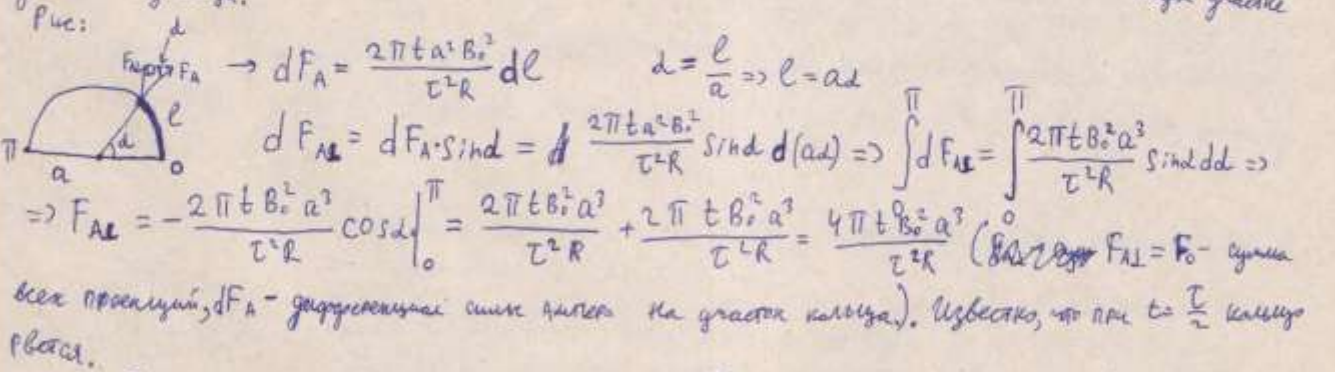 Рис:
α
→ dF_A = \frac{2πta²B₀²}{τ²R} dl α = \frac{l}{a} => l = aα
F_A⊥ F_A
l
α
π a 0
dF_A⊥ = dF_A·sinα = \frac{2πta²B₀²}{τ²R} sinα d(aα) => ∫dF_A⊥ = ∫_0^π \frac{2πtB₀²a³}{τ²R} sinα dα =>
=> F_A⊥ = -\frac{2πtB₀²a³}{τ²R} cosα |_0^π = \frac{2πtB₀²a³}{τ²R} + \frac{2πtB₀²a³}{τ²R} = \frac{4πtB₀²a³}{τ²R} ( F_A⊥ = F₀ - сумма
всех проекций, dF_A - дифференциал силы Ампера на участок кольца.). Известно, что при t = \frac{τ}{2} кольцо
рвется.